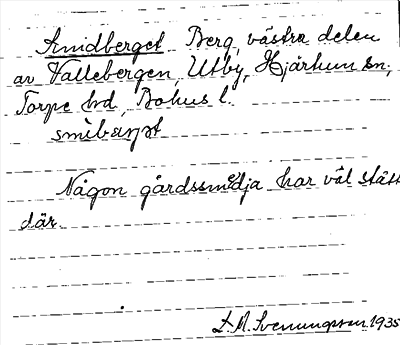 Smidberget Berg, västra delen
av Vallebergen, Utby, Hjärtum sn,
Torpe hd, Bohus l.
Någon gårdssmedja har väl stått
där.
L.A. Svenungsson 1935